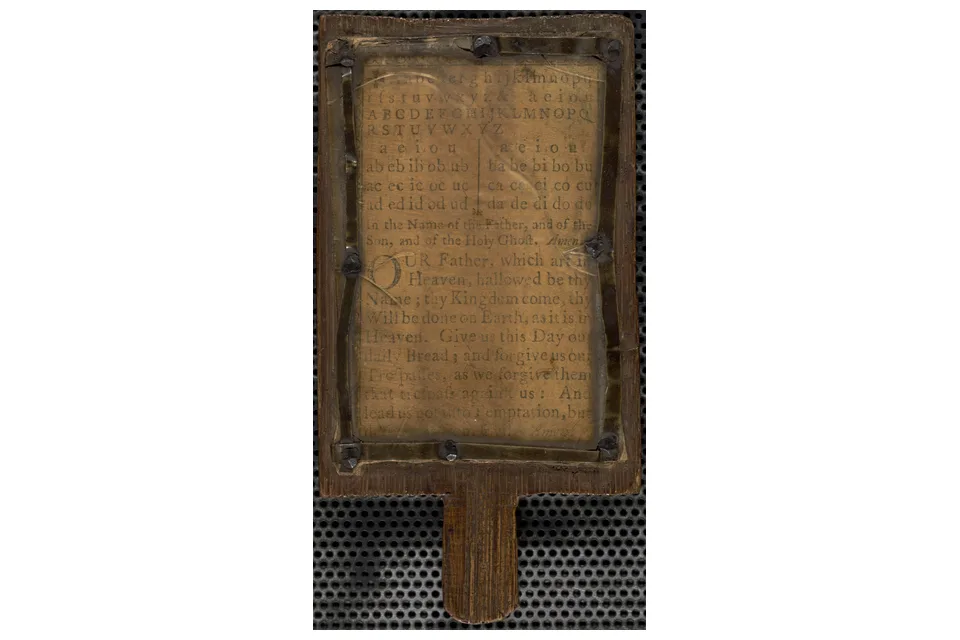 e r g h i j k l m n o p q
r ſ s t u v w x y z & a e i o u
A B C D E F G H I J K L M N O P Q
R S T U V W X Y Z
a e i o u a e i o u
ab eb ib ob ub ba be bi bo bu
ac ec ic oc uc ca ce ci co cu
ad ed id od ud da de di do du
In the Name of the Father, and of the
Son, and of the Holy Ghoſt. Amen.
OUR Father, which art in
Heaven, hallowed be thy
Name; thy Kingdom come, thy
Will be done on Earth, as it is in
Heaven. Give us this Day our
daily Bread; and forgive us our
Treſpaſſes, as we forgive them
that treſpaſs againſt us: And
lead us not into Temptation, but